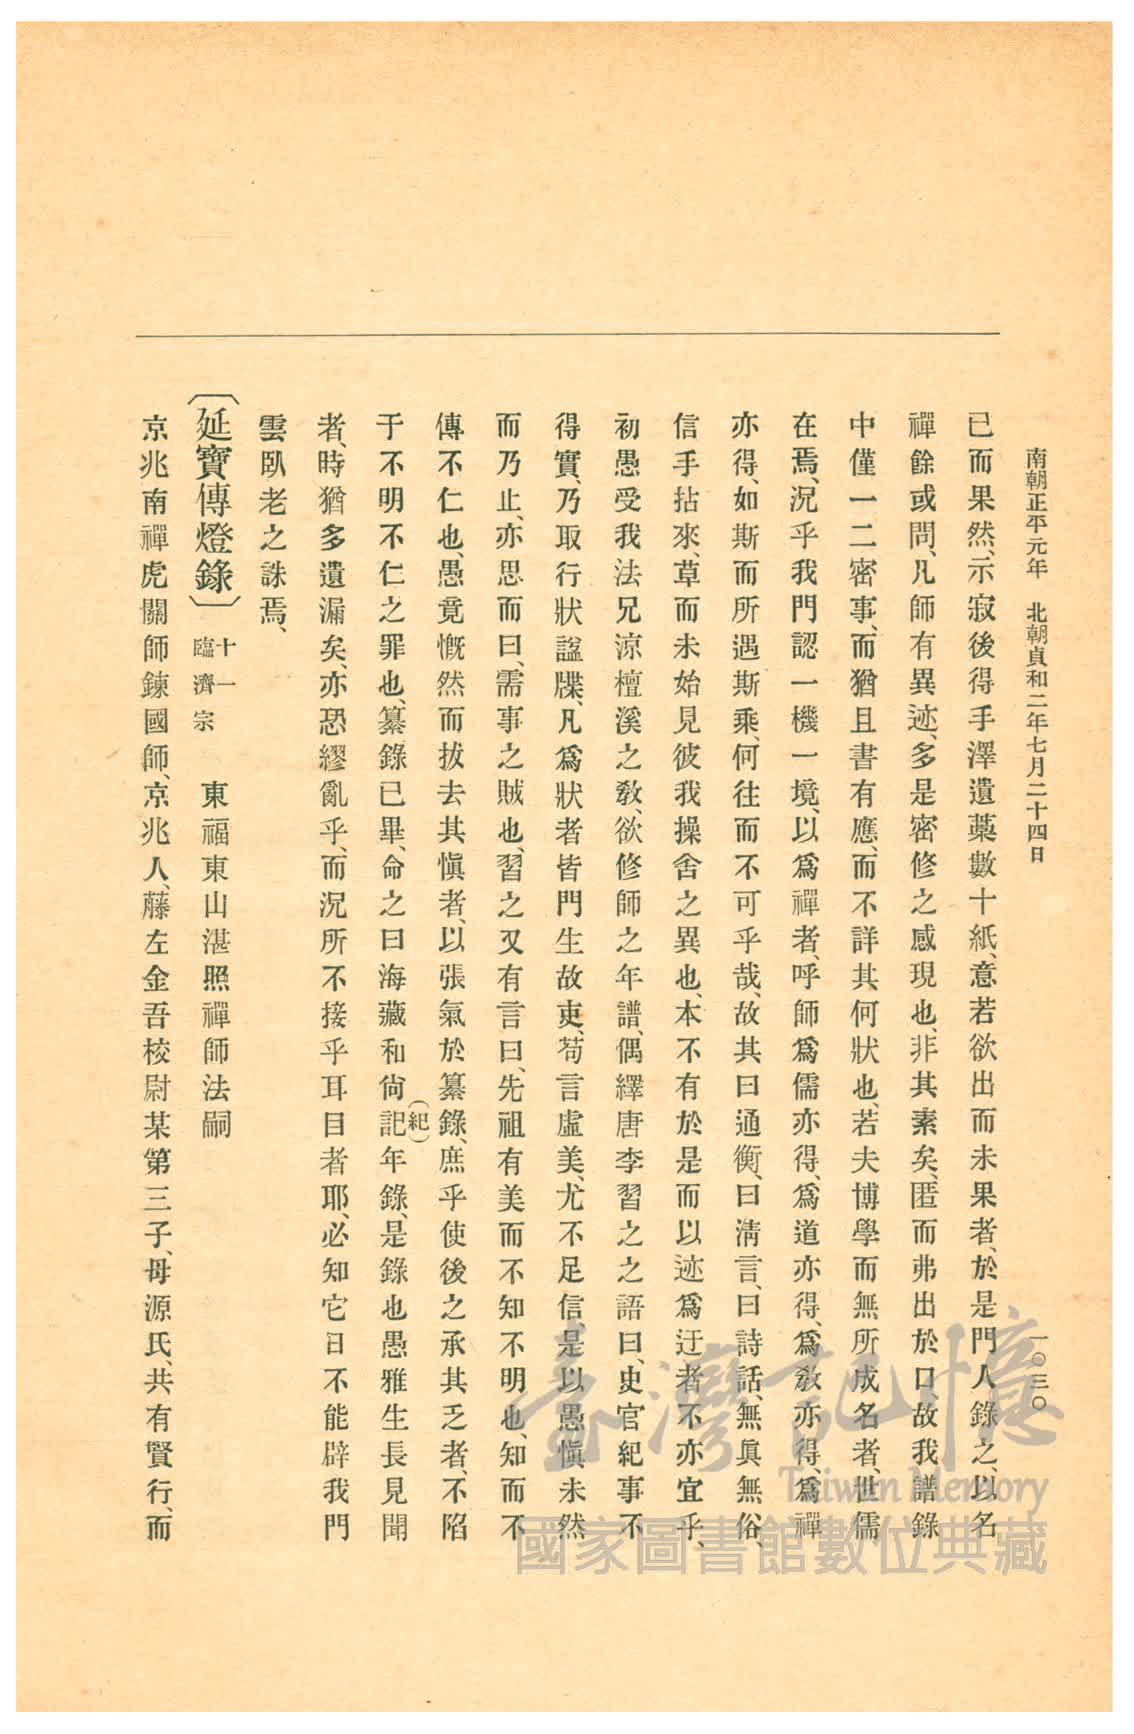 南朝正平元年　北朝貞和二年七月二十四日
一〇三〇
已而果然、示寂後得手澤遺藁數十紙、意若欲出而未果者、於是門人錄之、以名
禪餘或問、凡師有異迹、多是密修之感現也、非其素矣、匿而弗出於口、故我譜錄
中僅一二密事、而猶且書有應、而不詳其何狀也、若夫博學而無所成名者、世儒
在焉、況乎我門認一機一境、以爲禪者、呼師爲儒亦得、爲道亦得、爲敎亦得、爲禪
亦得、如斯而所遇斯乘、何往而不可乎哉、故其曰通衡、曰淸言、曰詩話、無眞無俗、
信手拈來、草而未始見彼我操舍之異也、本不有於是而以迹爲迂者不亦宜乎、
初愚受我法兄涼檀溪之敎、欲修師之年譜、偶繹唐李習之之語曰、史官紀事不
得實、乃取行狀謚牒、凡爲狀者皆門生故吏、苟言虛美、尤不足信是以愚愼未然
而乃止、亦思而曰、需事之賊也、習之又有言曰、先祖有美而不知不明也、知而不
傳不仁也、愚竟慨然而拔去其愼者、以張氣於纂錄、庶乎使後之承其乏者、不陷
于不明不仁之罪也、纂錄已畢、命之曰海藏和尙記(紀)年錄、是錄也愚雅生長見聞
者、時猶多遺漏矣、亦恐繆亂乎、而況所不接乎耳目者耶、必知它日不能辟我門
雲臥老之誅焉、
〔延寶傳燈錄〕十一 臨濟宗　東福東山湛照禪師法嗣
京兆南禪虎關師鍊國師、京兆人、藤左金吾校尉某第三子、母源氏、共有賢行、而
臺灣記憶
Taiwan Memory
國家圖書館數位典藏